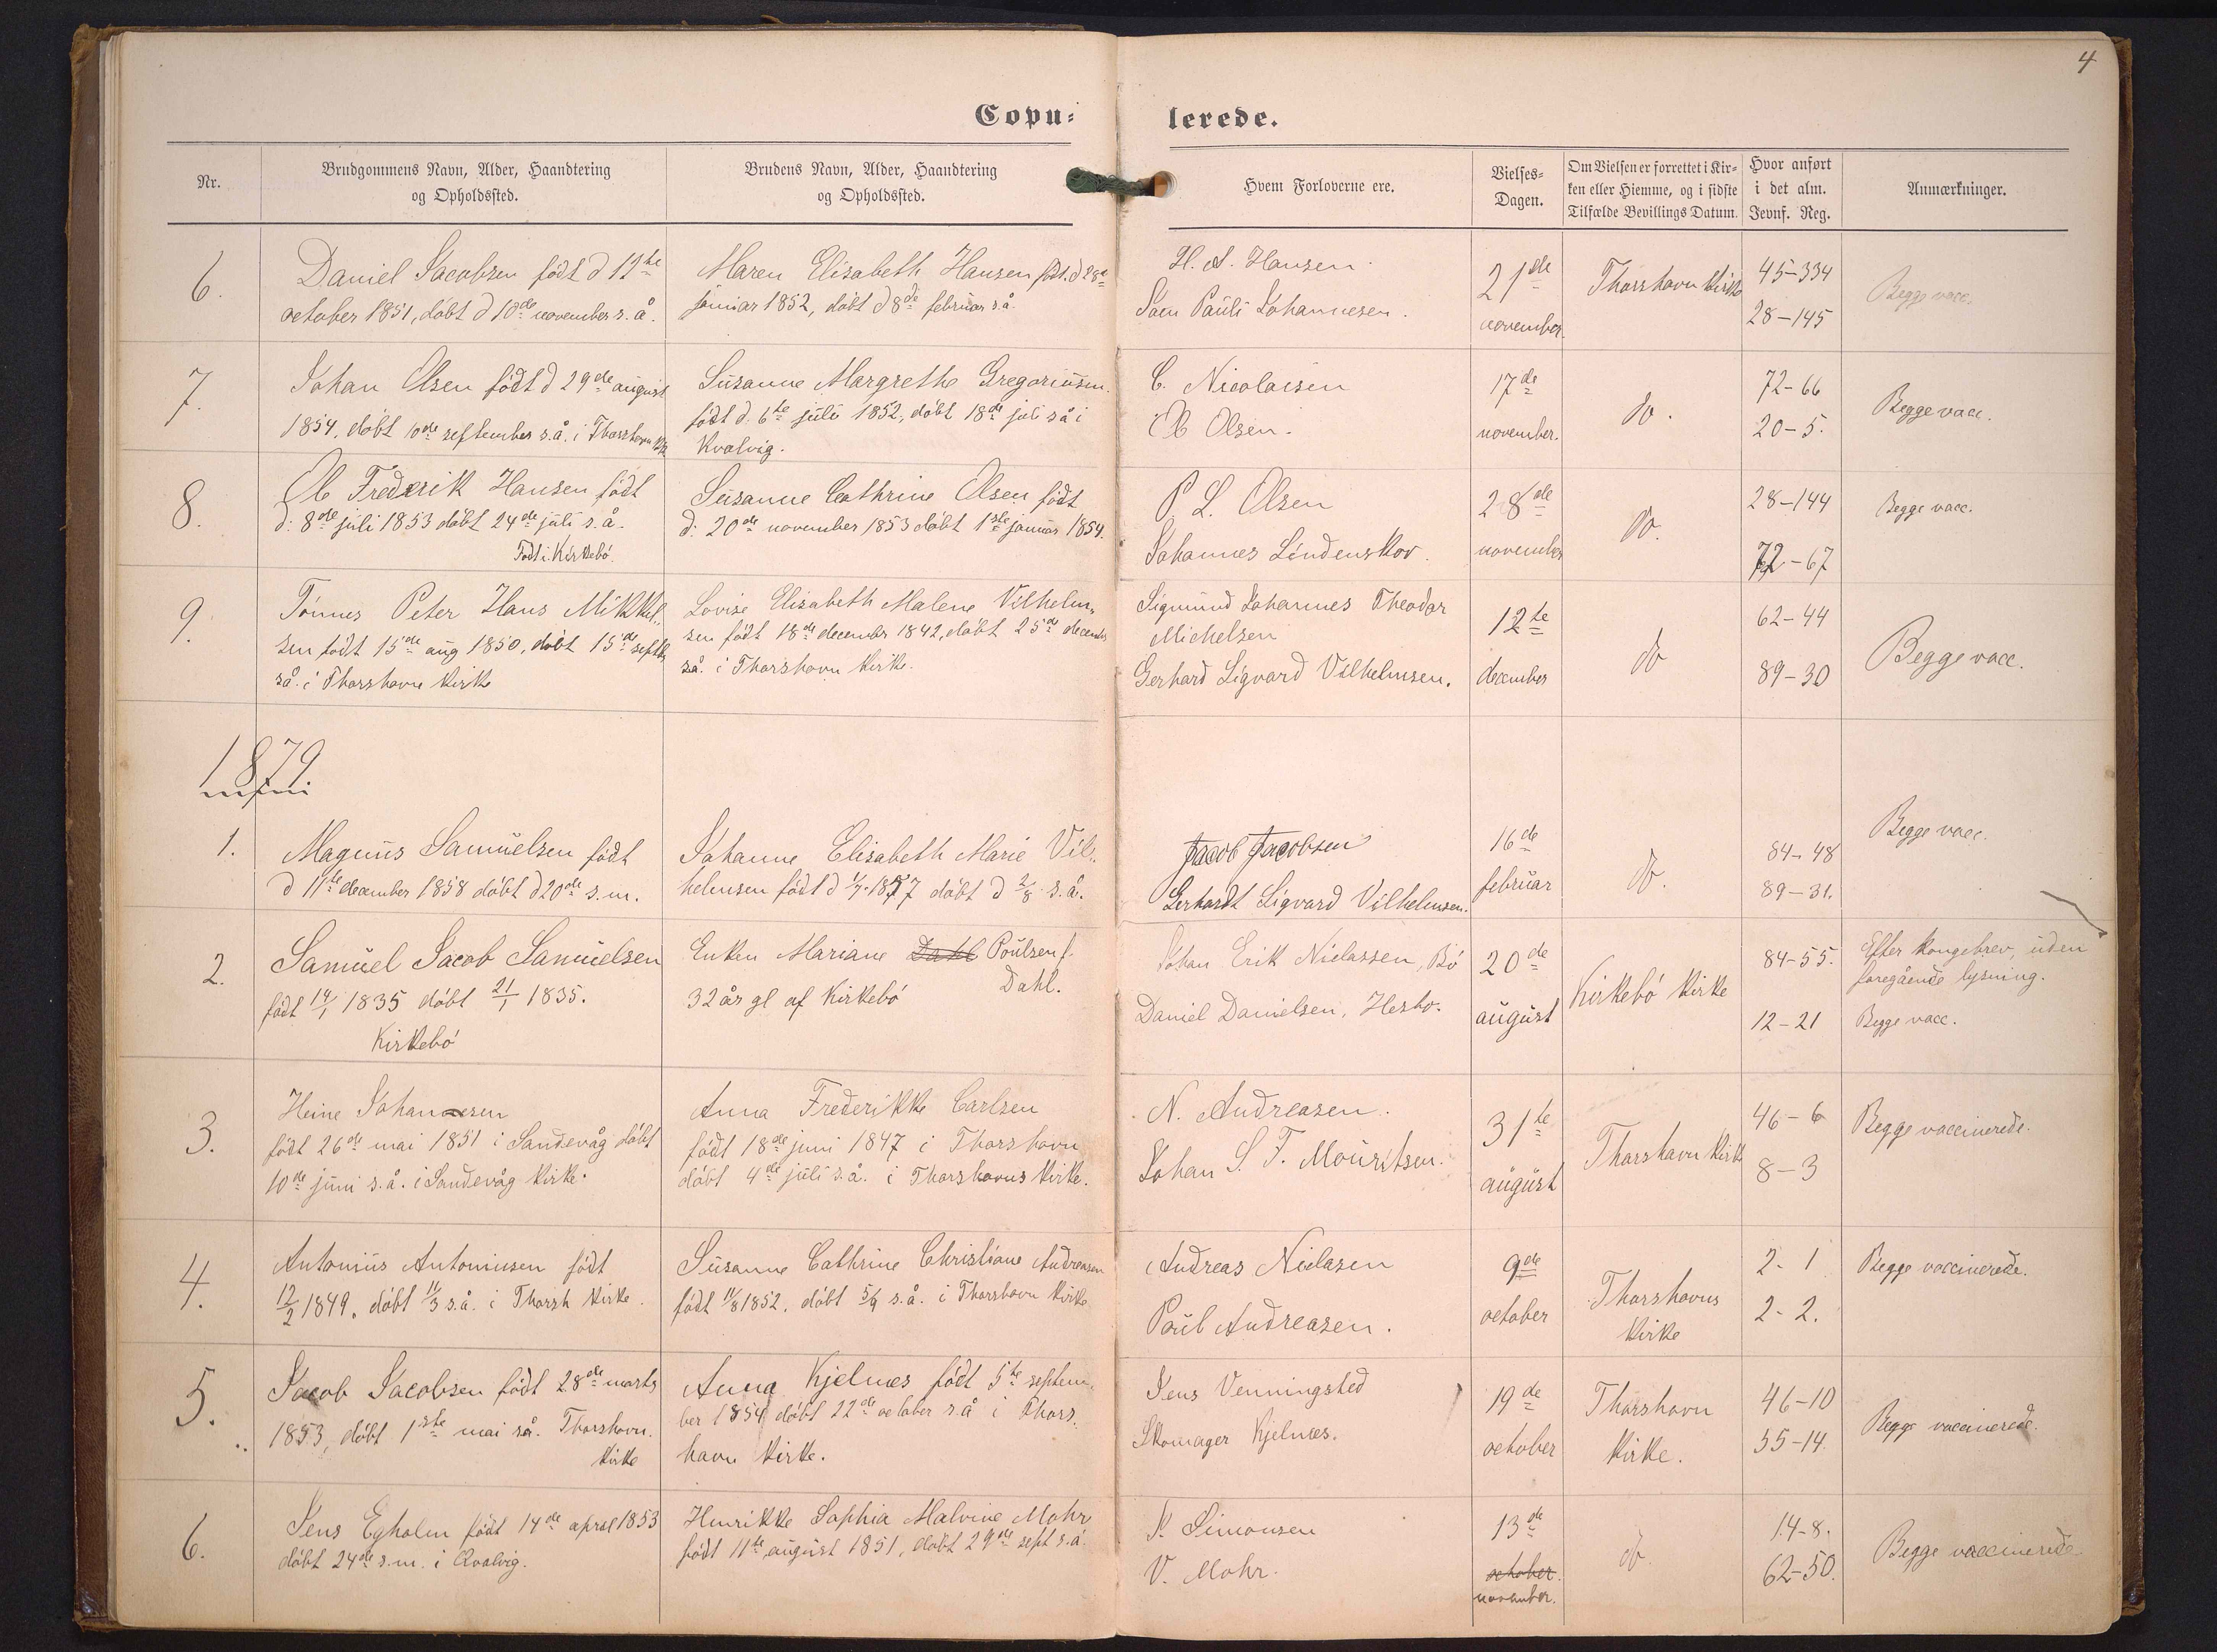 4
Copu=
lerede.
Nr.
Brudgommens Navn, Alder, Haandtering
og Opholdssted.
Brudens Navn, Alder, Haandtering
og Opholdssted.
Hvem Forloverne ere.
Vielses=
Dagen.
Om Vielsen er forrettet i Kir=
ken eller Hiemme, og i sidste
Tilfælde Bevillings Datum.
Hvor anført
i det alm.
Jevnf. Reg.
Anmærkninger.
6.
Daniel Jacobsen födt d 12te
october 1851, döbt d 10de november s. å.
Maren Elisabeth Hansen födt. d 28de
januar 1852, döbt d 8de februar så.
H. A. Hansen.
Joen Pauli Johannesen.
21de
november.
Thorshavn Kirke
45-334
28-145
Begge vacc.
7.
Johan Olsen födt d 29de august
1854. döbt 10de september s.å. i Thorshavn Kk.
Susanne Margrethe Gregoriusen.
födt d. 6te juli 1852, döbt 18de juli så i
Kvalvig.
C. Nicolaisen
Ole Olsen.
17de
november.
do.
72-66
20-5.
Begge vacc.
8.
Ole Frederik Hansen födt
d: 8de juli 1853 döbt 24de juli s.å.
Födt i Kirkebö.
Susanne Cathrine Olsen födt
d: 20de november 1853 döbt 1ste januar 1854.
P. L. Olsen
Johannes Lindenskov.
28de
november
do.
28-144
72-67
Begge vacc.
9.
Tönnes Peter Hans Mikkel-
sen födt 15de aug 1850, döbt 15de septbr
så. i Thorshavn Kirke
Lovise Elisabeth Malene Vilhelm-
sen födt 18de december 1842, döbt 25de december
så. i Thorshavn Kirke.
Sigmund Johannes Theodor
Michelsen
Gerhard Sigvard Vilhelmsen.
12te
december
do
62-44
89-30
Begge vacc.
1879.
1.
Magnus Samuelsen födt
d 11te december 1858 döbt d 20de s.m.
Johanne Elisabeth Marie Vil-
helmsen födt d 1/7 1857 döbt d 2/8 s.å.
Jacob Jacobsen
Gerhardt Sigvard Vilhelmsen.
16de
februar
do.
84-48
89-31.
Begge vacc.
2.
Samuel Jacob Samuelsen
födt 14/1 1835 döbt 21/1 1835.
Kirkebö
Enken Mariane Dahl Poulsen f.
Dahl.
32 år gl af Kirkebö
Johan Erik Nielassen, Bö
Daniel Danielsen, Hestö.
20de
august
Kirkebö Kirke
84-55.
12-21
Efter Kongebrev, uden
foregående lysning.
Begge vacc.
3.
Heine Johannesen
födt 26de mai 1851 i Sandevåg döbt
10de juni s.å. i Sandevåg Kirke.
Anna Frederikke Carlsen
födt 18de juni 1847 i Thorshavn
döbt 4de juli s.å. i Thorshavns Kirke.
N. Andreasen.
Johan S. F. Mouritsen.
31te
august
Thorshavn Kirke
46-6
8-3
Begge vaccinerede.
4.
Antonius Antoniusen födt
12/2 1849. döbt 11/3 s.å. i Thorsh Kirke.
Susanne Cathrine Christiane Andreasen
födt 11/8 1852. döbt 5/9 s.å. i Thorshavn Kirke
Andreas Nielasen
Poul Andreasen.
9de
october
Thorshavns
Kirke
2-1
2-2.
Begge vaccinerede.
5.
Jacob Jacobsen födt 28de marts
1853, döbt 1ste mai så. Thorshavn.
Kirke
Anna Kjelnæs födt 5te septem-
ber 1854 döbt 22de october s.å i Thors-
havn Kirke.
Jens Venningsted
Skomager Kjelnæs.
19de
october
Thorshavn
Kirke.
46-10
55-14.
Begge vaccinerede.
6.
Jens Egholm födt 14de april 1853
döbt 24de s.m. i Qvalvig.
Henrikke Sophia Malvine Mohr
födt 11te august 1851, döbt 29de sept s.å.
J. Simonsen
V. Mohr.
13de
october.
november.
do.
14-8.
62-50.
Begge vaccinerede